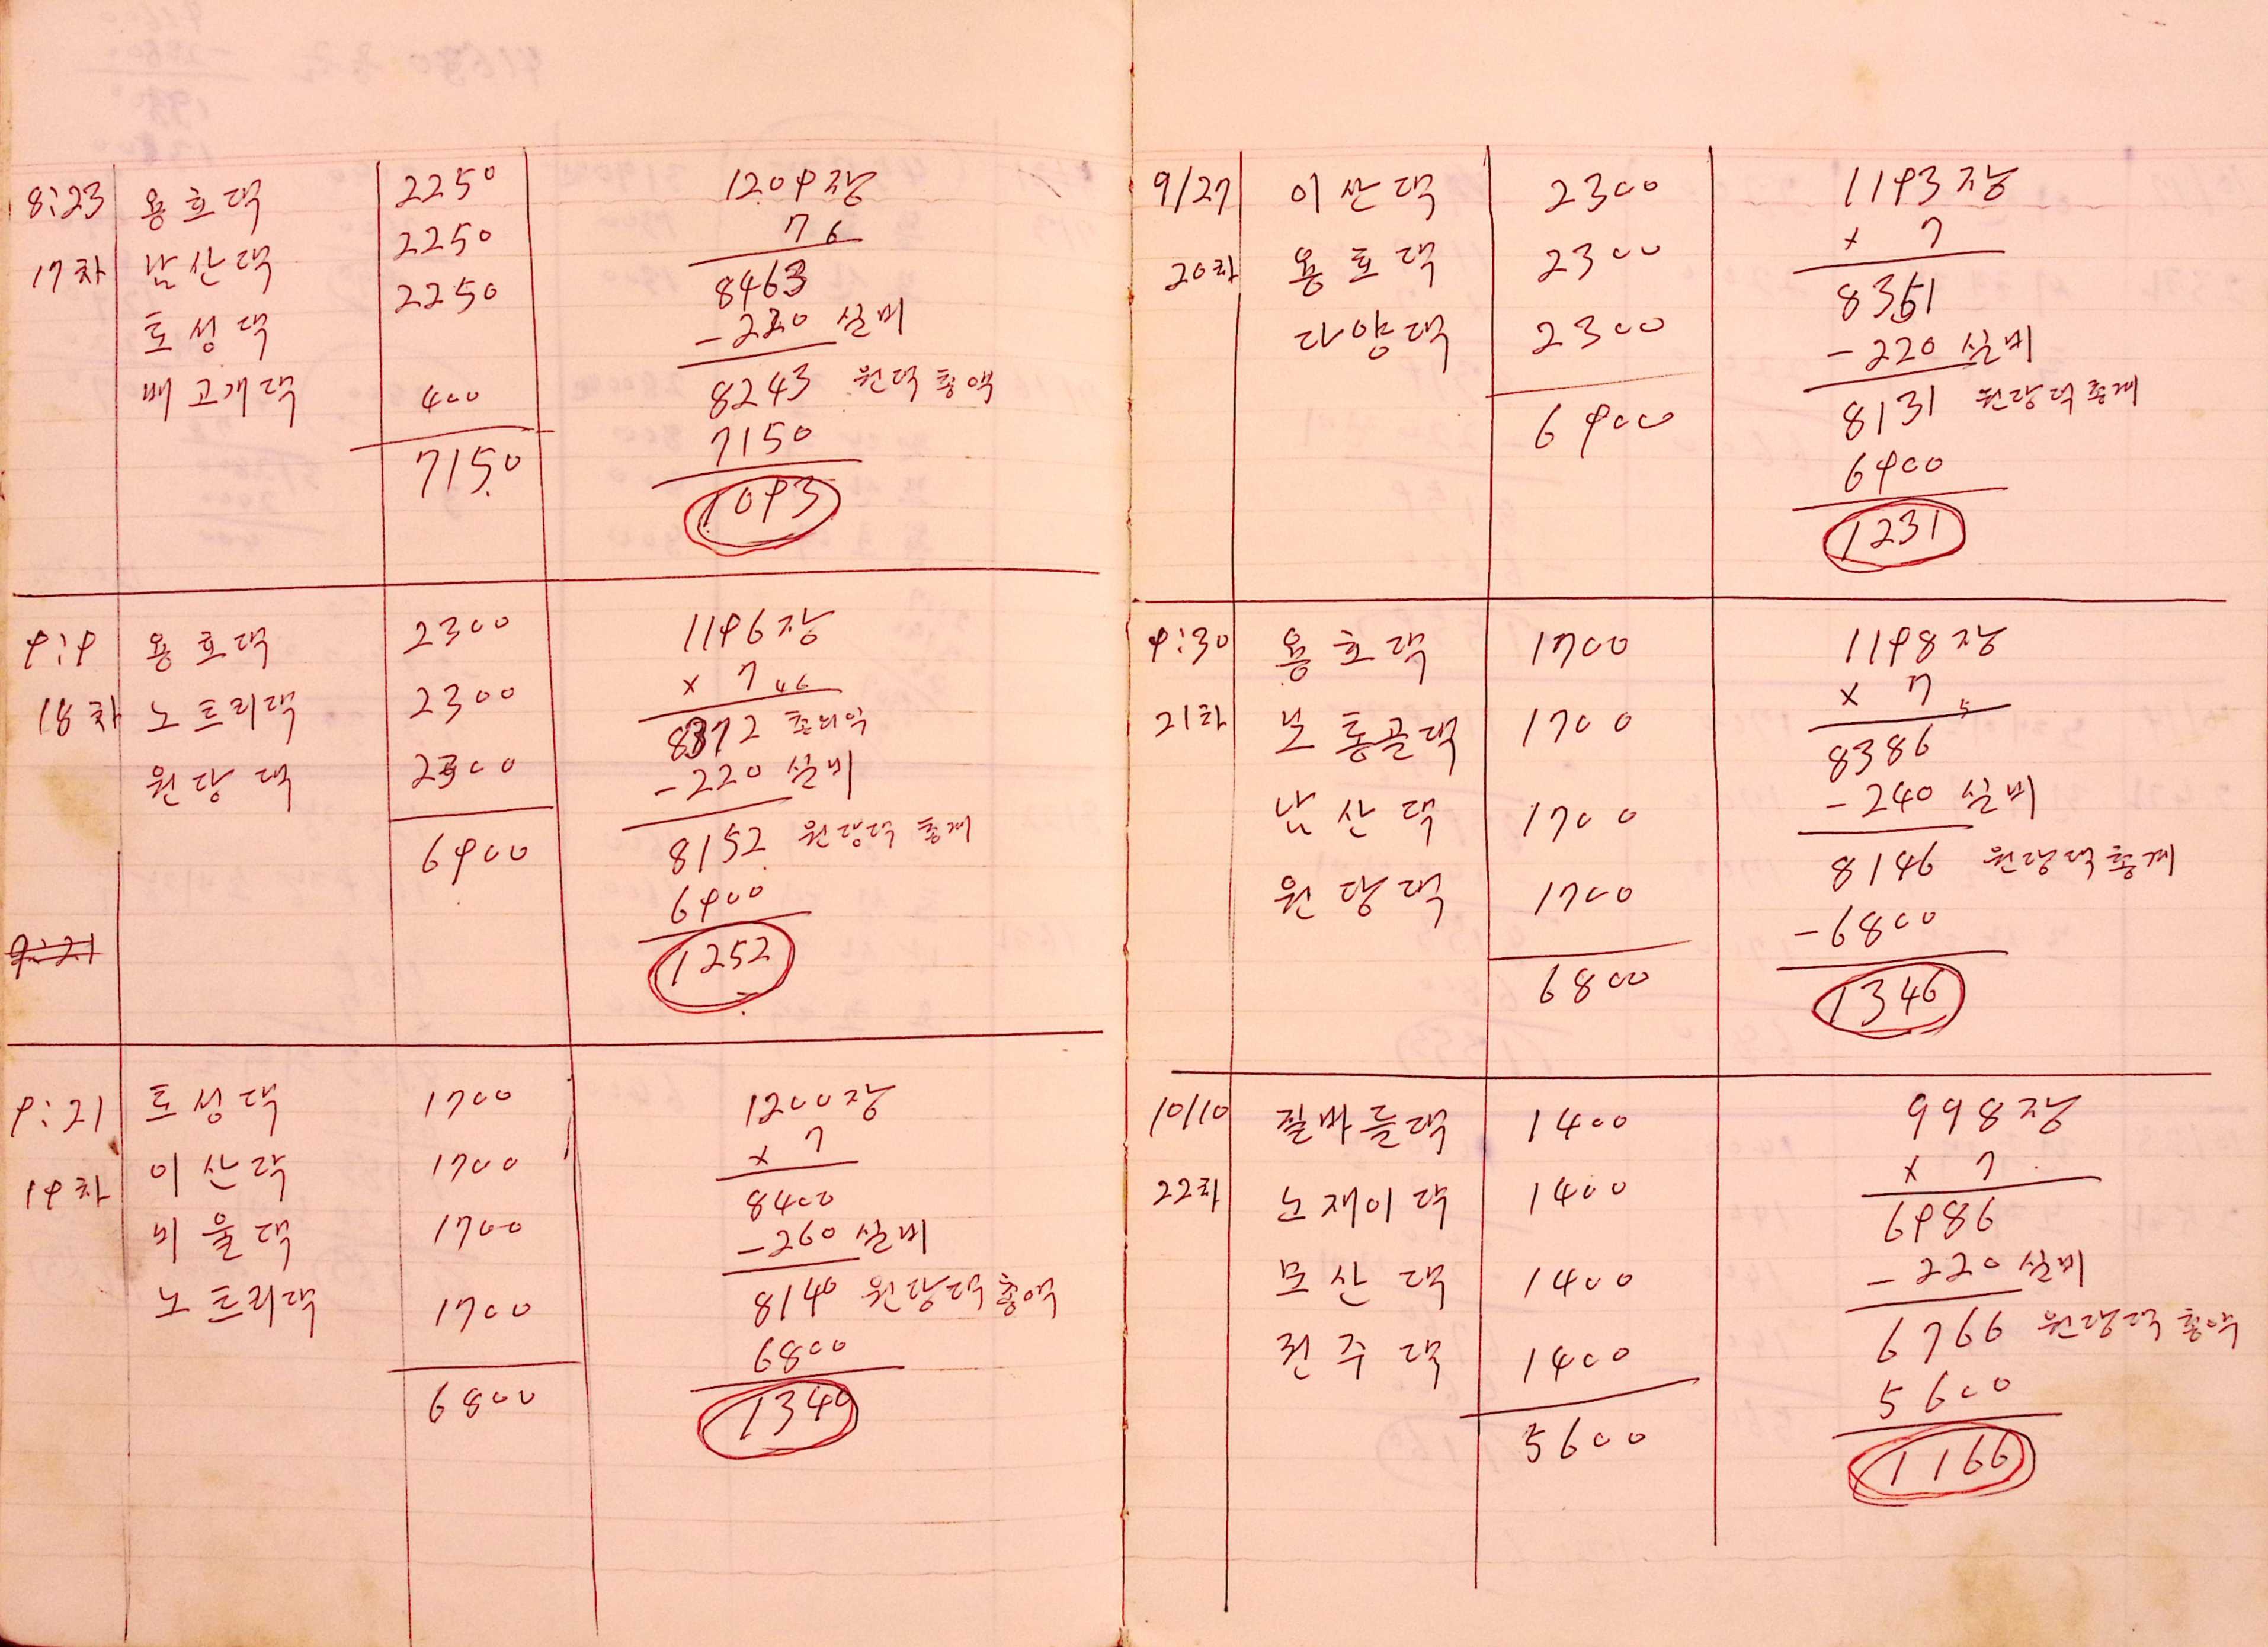 8:23 용호댁 2250 1209장
17차 남산댁 2250 7 6
토성댁 2250 8463
-220 실비
배고개댁 400 8243 원댁 총액
7150 7150
1093
9:9 용호댁 2300 1196장
18차 노트리댁 2300 x 7 46
8372
원당댁 2300 -220 실비
6900 8152 원당댁 총계
6900
9:21 1252
9:21 토성댁 1700 1200장
19차 이산댁 1700 x 7
8400
미울댁 1700 -260 실비
노트리댁 1700 8140 원당댁 총액
6800 6800
1340
9/27 이산댁 2300 1193장
20차 용호댁 2300 x 7
8351
다양댁 2300 -220 실비
6900 8131 원당댁 총계
6900
1231
9:30 용호댁 1700 1198장
21차 보통골댁 1700 x 7 5
8386
남산댁 1700 -240 실비
원당댁 1700 8146 원당댁 총계
-6800
6800 1346
10/10 질바들댁 1400 998장
22차 노재이댁 1400 x 7
6986
모산댁 1400 -220 실비
전주댁 1400 6766 원당댁 총액
5600 5600
1166